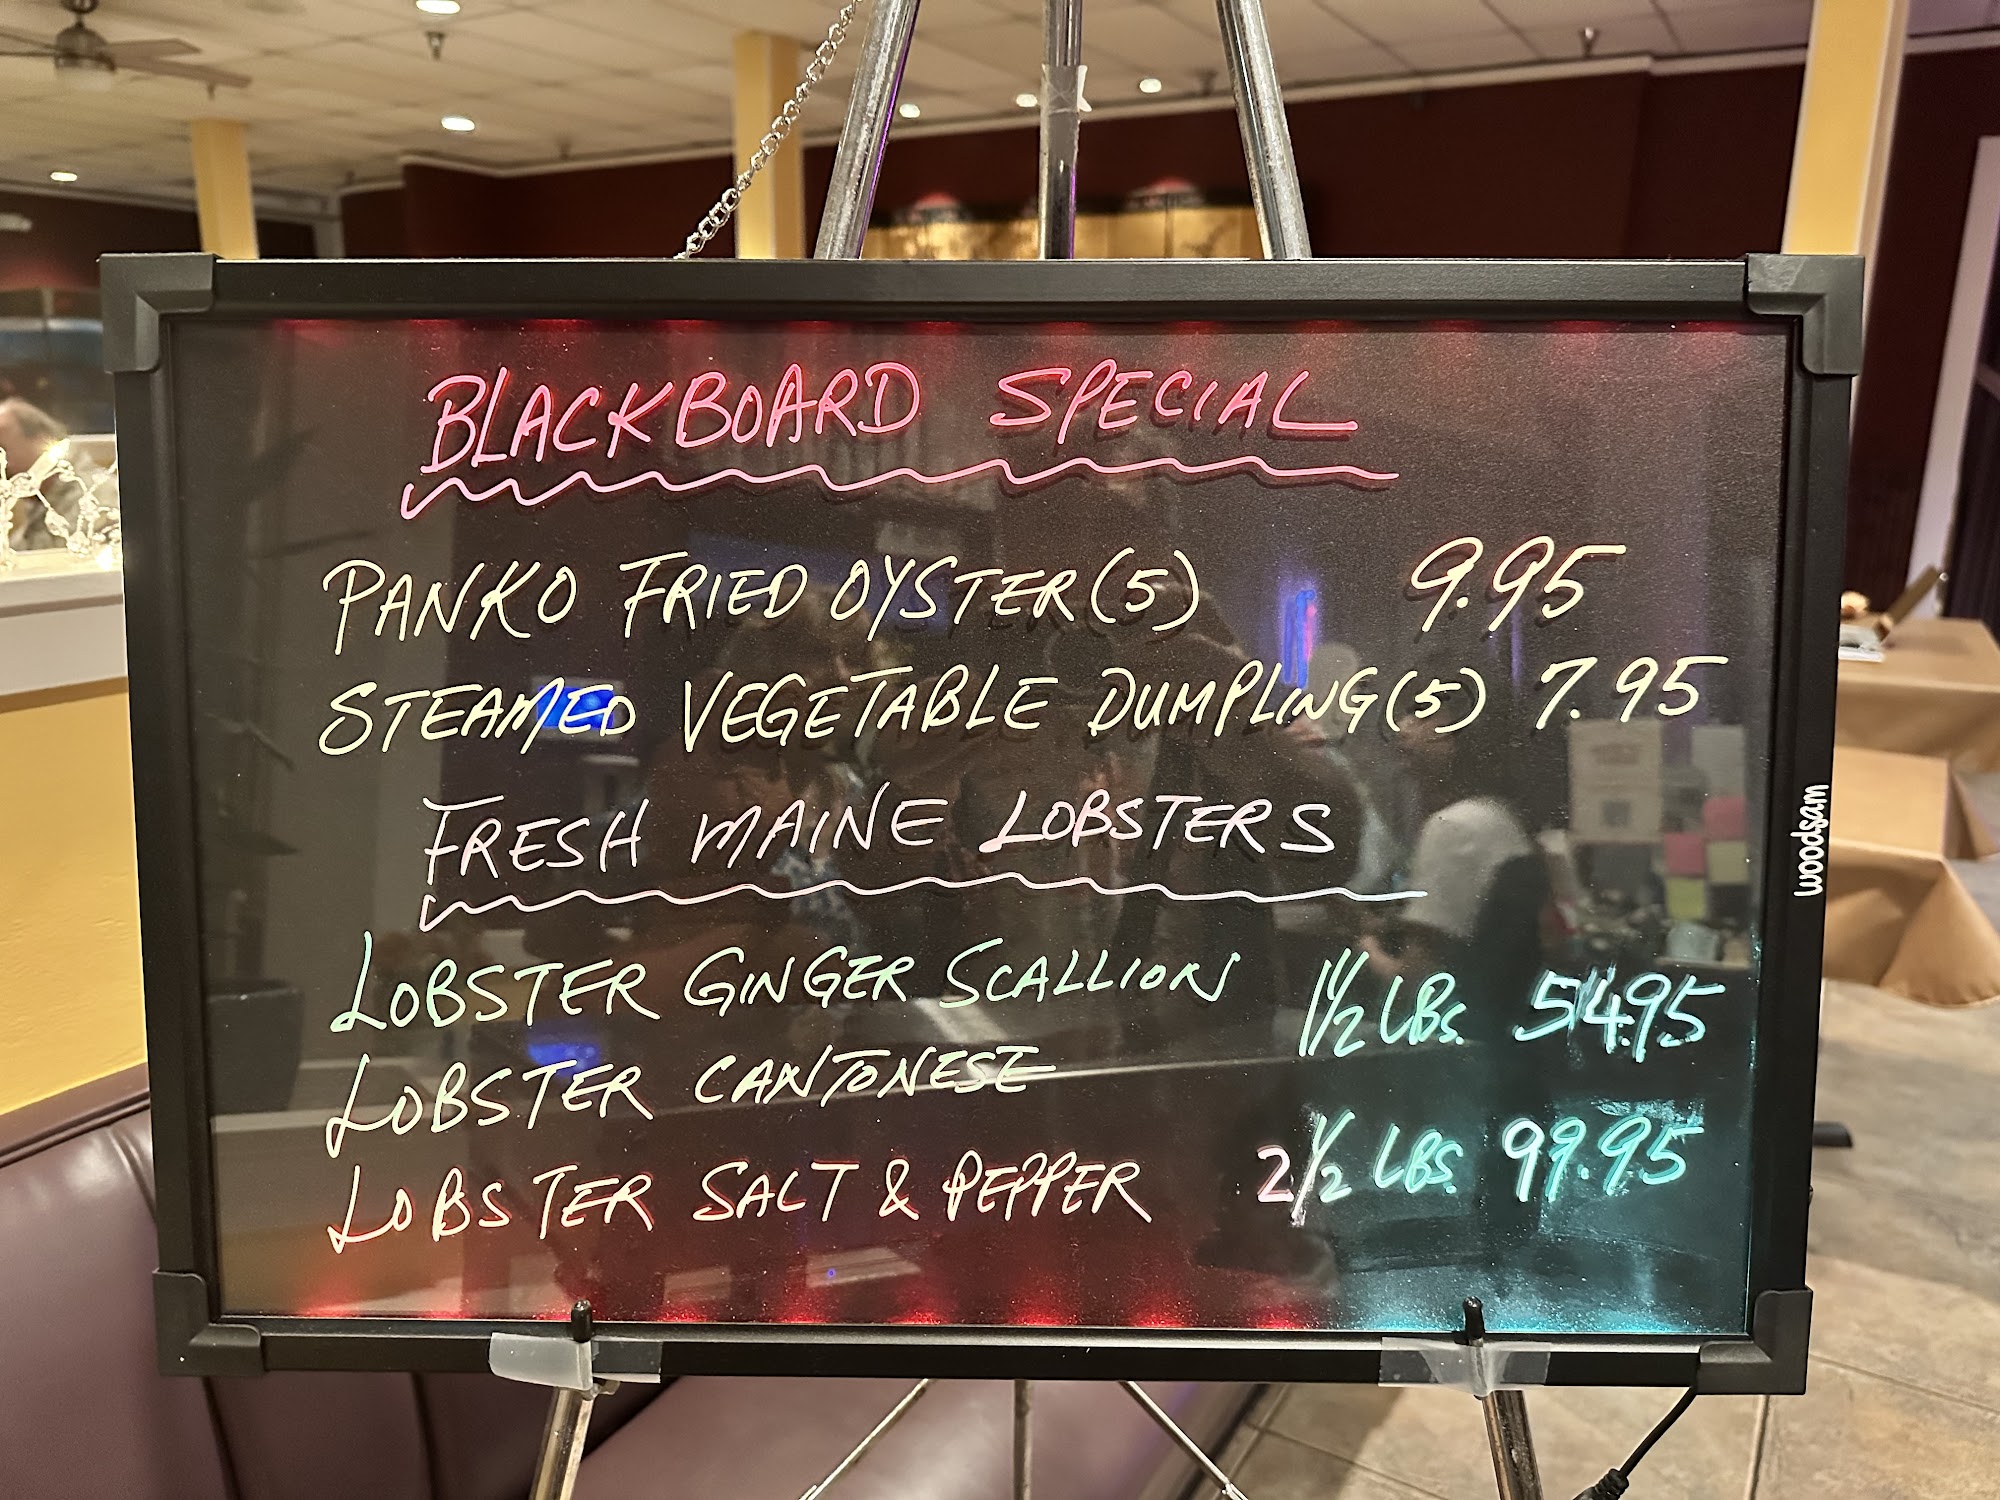 BLACKBOARD SPECIAL
PANKO FRIED OYSTER (5) 9.95
STEAMED VEGETABLE DUMPLING (5) 7.95
FRESH MAINE LOBSTERS
LOBSTER GINGER SCALLION 1 1/2 LBS. 54.95
LOBSTER CANTONESE
LOBSTER SALT & PEPPER 2 1/2 LBS. 99.95
woodsam